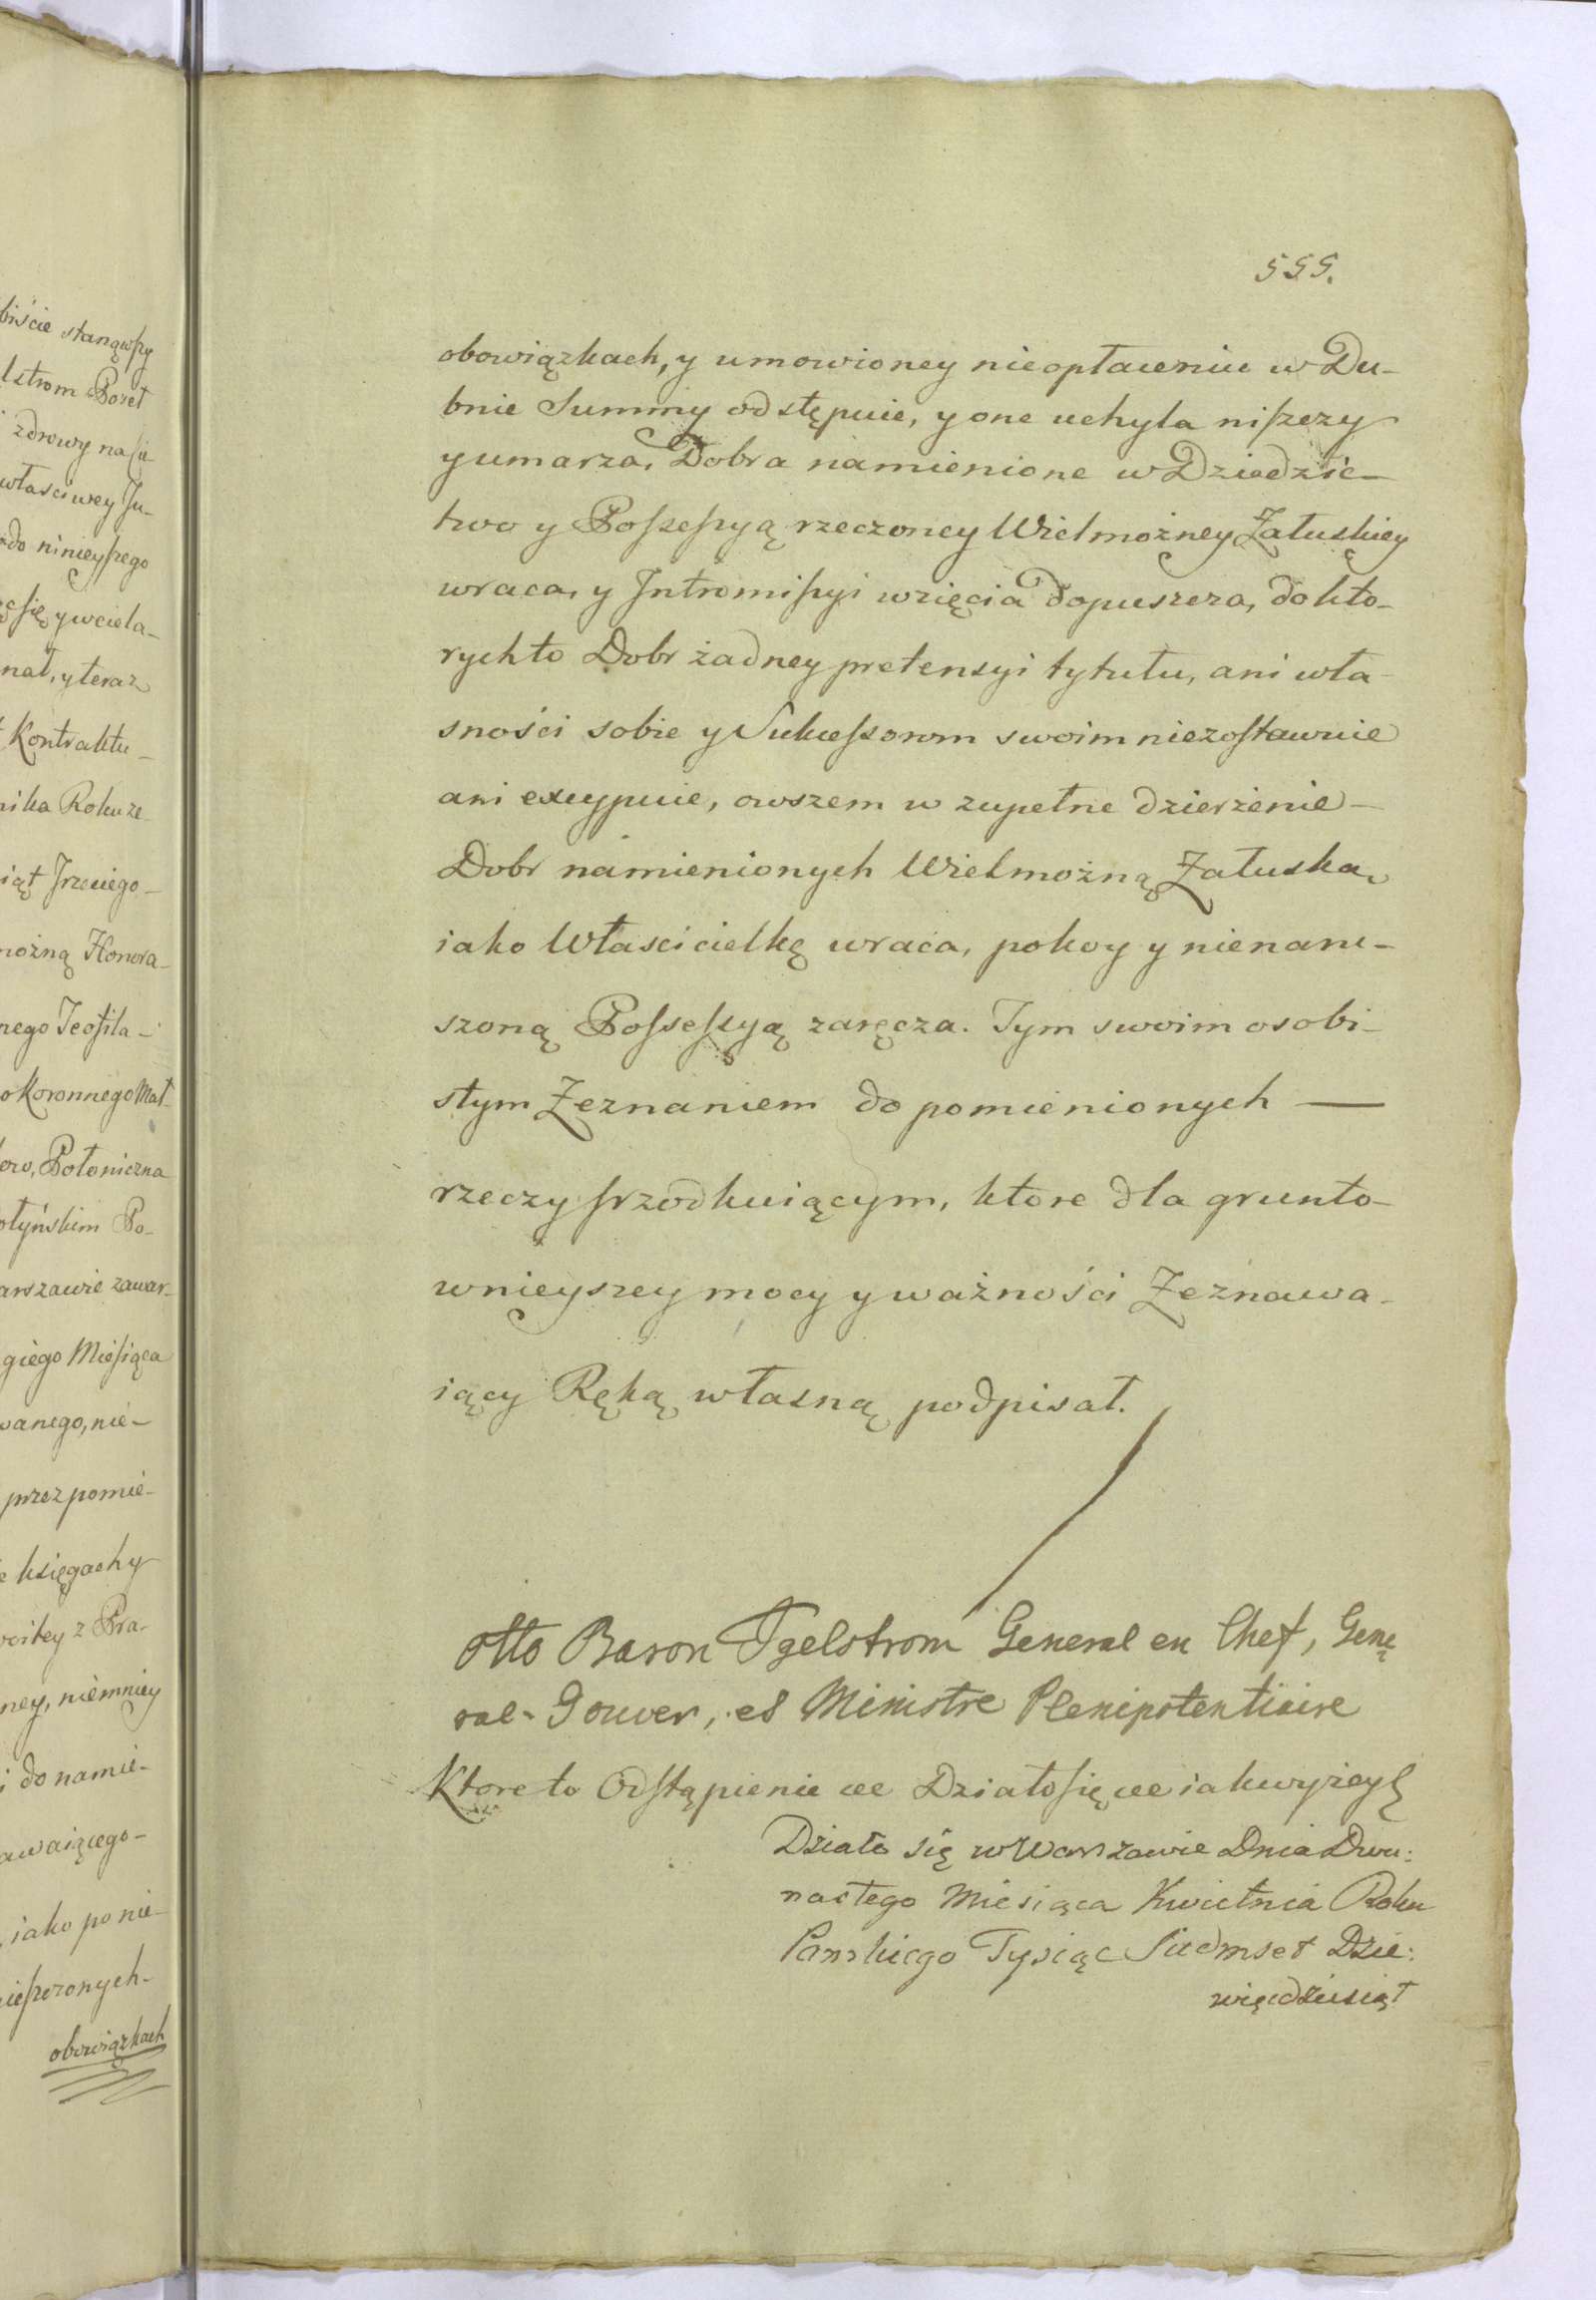 biście stanąwszy
lstrom Poseł
zdrowy na sie
własciwey Ju-
do ninieyszego
się y wciela-
nał, y teraz
Kontraktu-
nika Roku ze
iąt Trzeciego-
możną Honora-
nego Teofila-
o Koronnego Mał-
oro, Połoniczna
ołyńskim Po-
arszawie zawar-
giego Miesiąca
wanego, nie-
przez pomie-
księgach y
z Pra-
ney, niemniey
i do namie-
awaiącego-
iako po nie-
ieszczonych-
obowiązkach
555.
obowiązkach, y umowioney nieopłaceniu w Du-
bnie Summy odstępuie, y one uchyla niszczy
y umarza, Dobra namienione w Dziedzic-
two y Possessyą rzeczoney Wielmożney Załuskiey
wraca, y Intromissyi wzięcia dopuszcza, do kto-
rychto Dobr żadney pretensyi tytułu, ani wła-
sności sobie y Sukcessorom swoim niezostawuie
ani excypuie, owszem w zupełne dzierżenie-
Dobr namienionych Wielmożną Załuską,
iako Własicielkę wraca, pokoy y nienaru-
szoną Possessyą zaręcza. Tym swoim osobi-
stym Zeznaniem do pomienionych —
rzeczy srzodkuiącym, ktore dla grunto-
wnieyszey mocy y ważności Zeznawa-
iący Ręką własną podpisał.
Otto Baron Igelstrom General en Chef, Gene
ral-Gouver, et Ministre Plenipotentiaire
Ktore to Odstąpienie &c Działo się &c iak wyżey
Działo się w Warszawie Dnia Dwu:
nastego Miesiąca Kwietnia Roku
Panskiego Tysiąc Siedmset Dzie:
więcdziesiąt